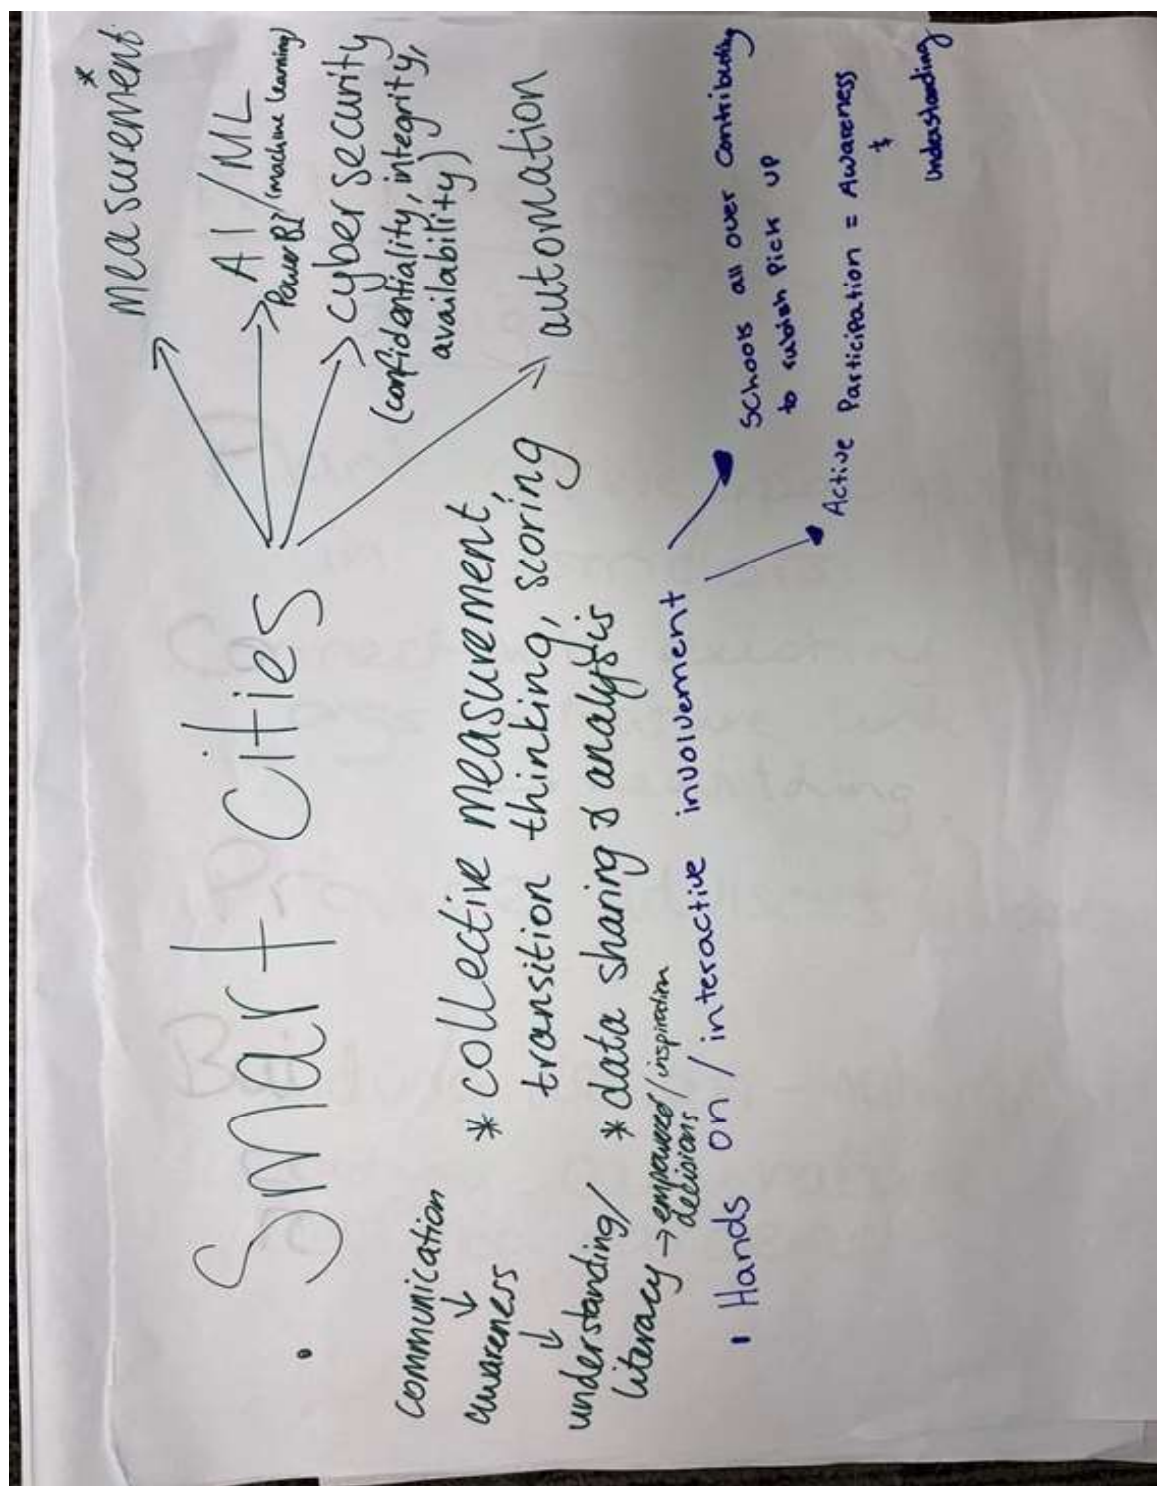 measurement*
• Smart Cities
AI/ML
Power BI/(machine learning)
cyber security
(confidentiality, integrity,
availability)
automation
communication
↓
awareness
↓
understanding/
literacy → empowered/inspiration
decisions
* collective measurement,
transition thinking, scoring
* data sharing & analysis
• Hands on / interactive involvement
Schools all over Contributing
to rubish Pick up
Active Participation = Awareness
&
Understanding